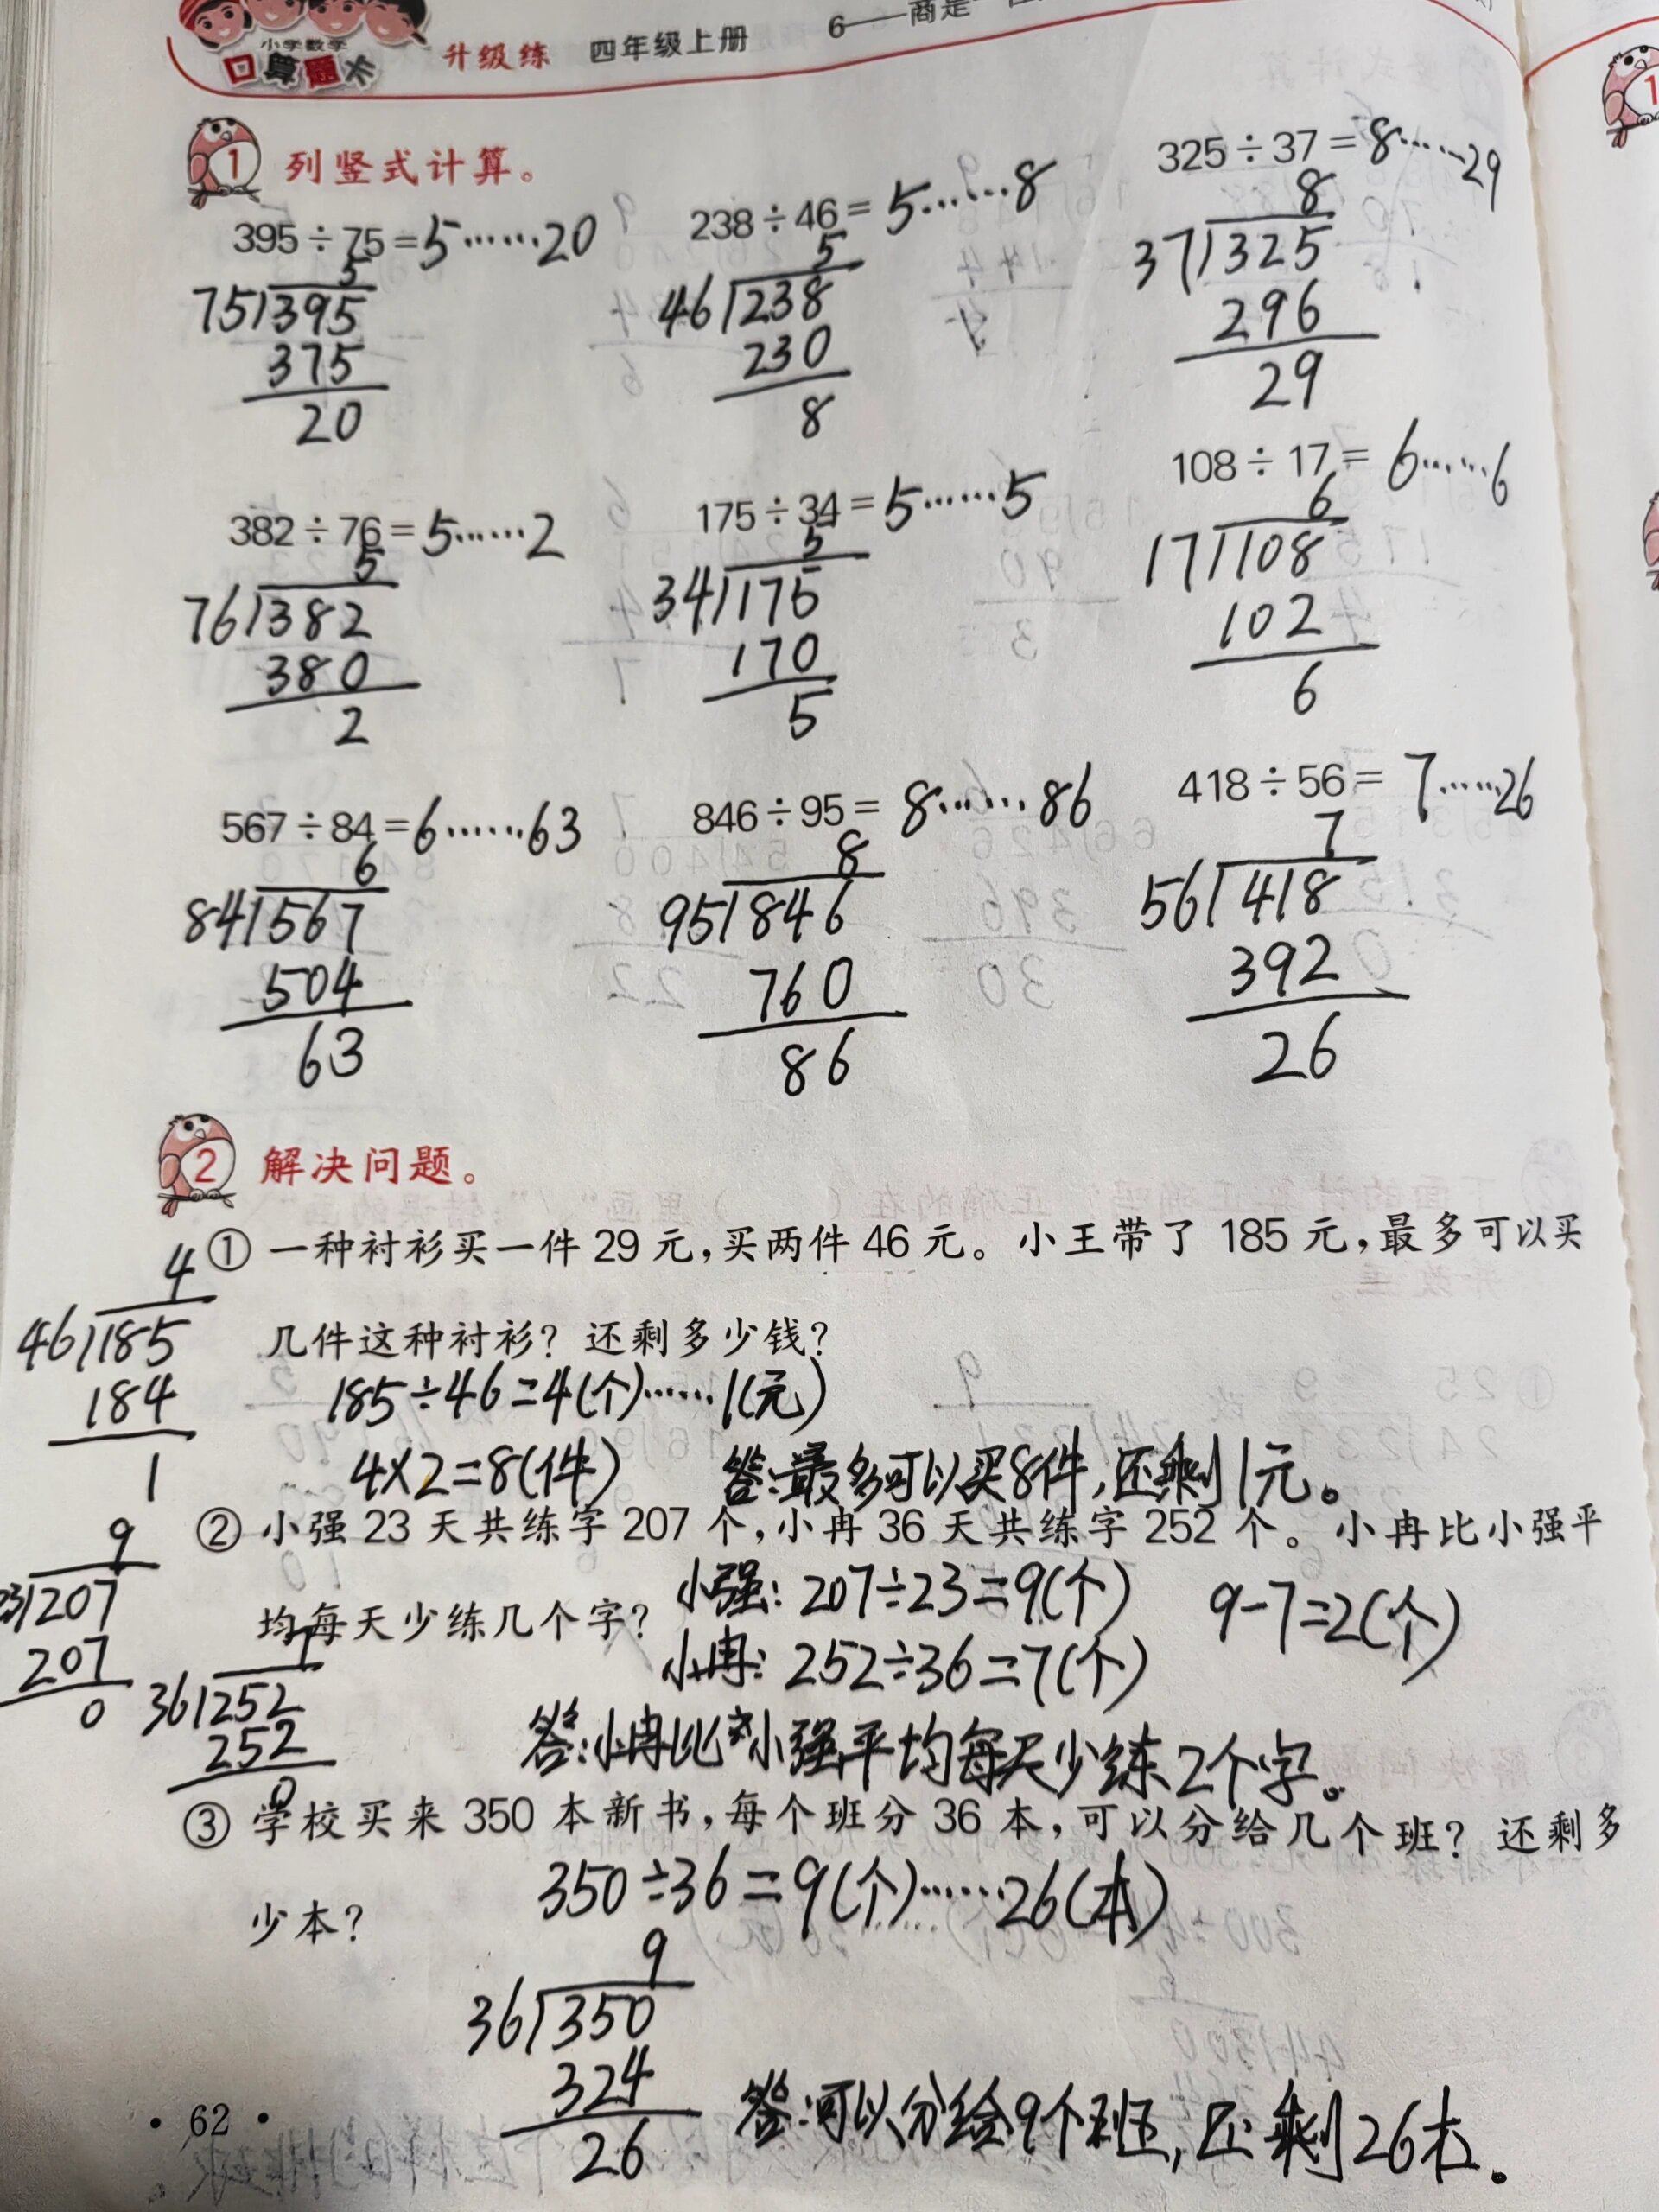 小学数学
口算题卡 升级练 四年级上册 6——商是一
1 列竖式计算。
395÷75=5……20
5
75 395
375
20
238÷46=5……8
5
46 238
230
8
325÷37=8……29
8
37 325
296
29
382÷76=5……2
5
76 382
380
2
175÷34=5……5
5
34 175
170
5
108÷17=6……6
6
17 108
102
6
567÷84=6……63
6
84 567
504
63
846÷95=8……86
8
95 846
760
86
418÷56=7……26
7
56 418
392
26
2 解决问题。
① 一种衬衫买一件 29 元,买两件 46 元。小王带了 185 元,最多可以买
几件这种衬衫? 还剩多少钱?
4
46 185
184
1
185÷46=4(个)……1(元)
4×2=8(件) 答:最多可以买8件,还剩1元。
② 小强 23 天共练字 207 个,小冉 36 天共练字 252 个。小冉比小强平
均每天少练几个字?
小强: 207÷23=9(个) 9-7=2(个)
小冉: 252÷36=7(个)
9
23 207
207
0
7
36 252
252
0
答:小冉比小强平均每天少练2个字。
③ 学校买来 350 本新书,每个班分 36 本,可以分给几个班? 还剩多
少本?
350÷36=9(个)……26(本)
9
36 350
324
26
答:可以分给9个班,还剩26本。
· 62 ·